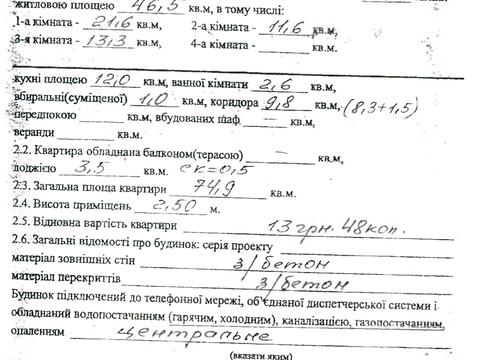 житловою площею 46,5 кв.м, в тому числі:
1-а кімната - 21,6 кв.м, 2-а кімната - 11,6 кв.м,
3-я кімната - 13,3 кв.м, 4-а кімната - кв.м.
кухні площею 12,0 кв.м, ванної кімнати 2,6 кв.м,
вбиральні(суміщеної) 1,0 кв.м, коридора 9,8 кв.м, (8,3+1,5)
передпокою — кв.м, вбудованих шаф — кв.м,
веранди кв.м.
2.2. Квартира обладнана балконом(терасою) — кв.м,
лоджією 3,5 кв.м. ск=0,5
2.3. Загальна площа квартири 74,9 кв.м.
2.4. Висота приміщень 2,50 м.
2.5. Відновна вартість квартири 13 грн. 48 коп.
2.6. Загальні відомості про будинок: серія проекту
матеріал зовнішніх стін з/бетон
матеріал перекриттів з/бетон
Будинок підключений до телефонної мережі, об'єднаної диспетчерської системи і
обладнаний водопостачанням (гарячим, холодним), каналізацією, газопостачанням,
опаленням центральне
(вказати яким)